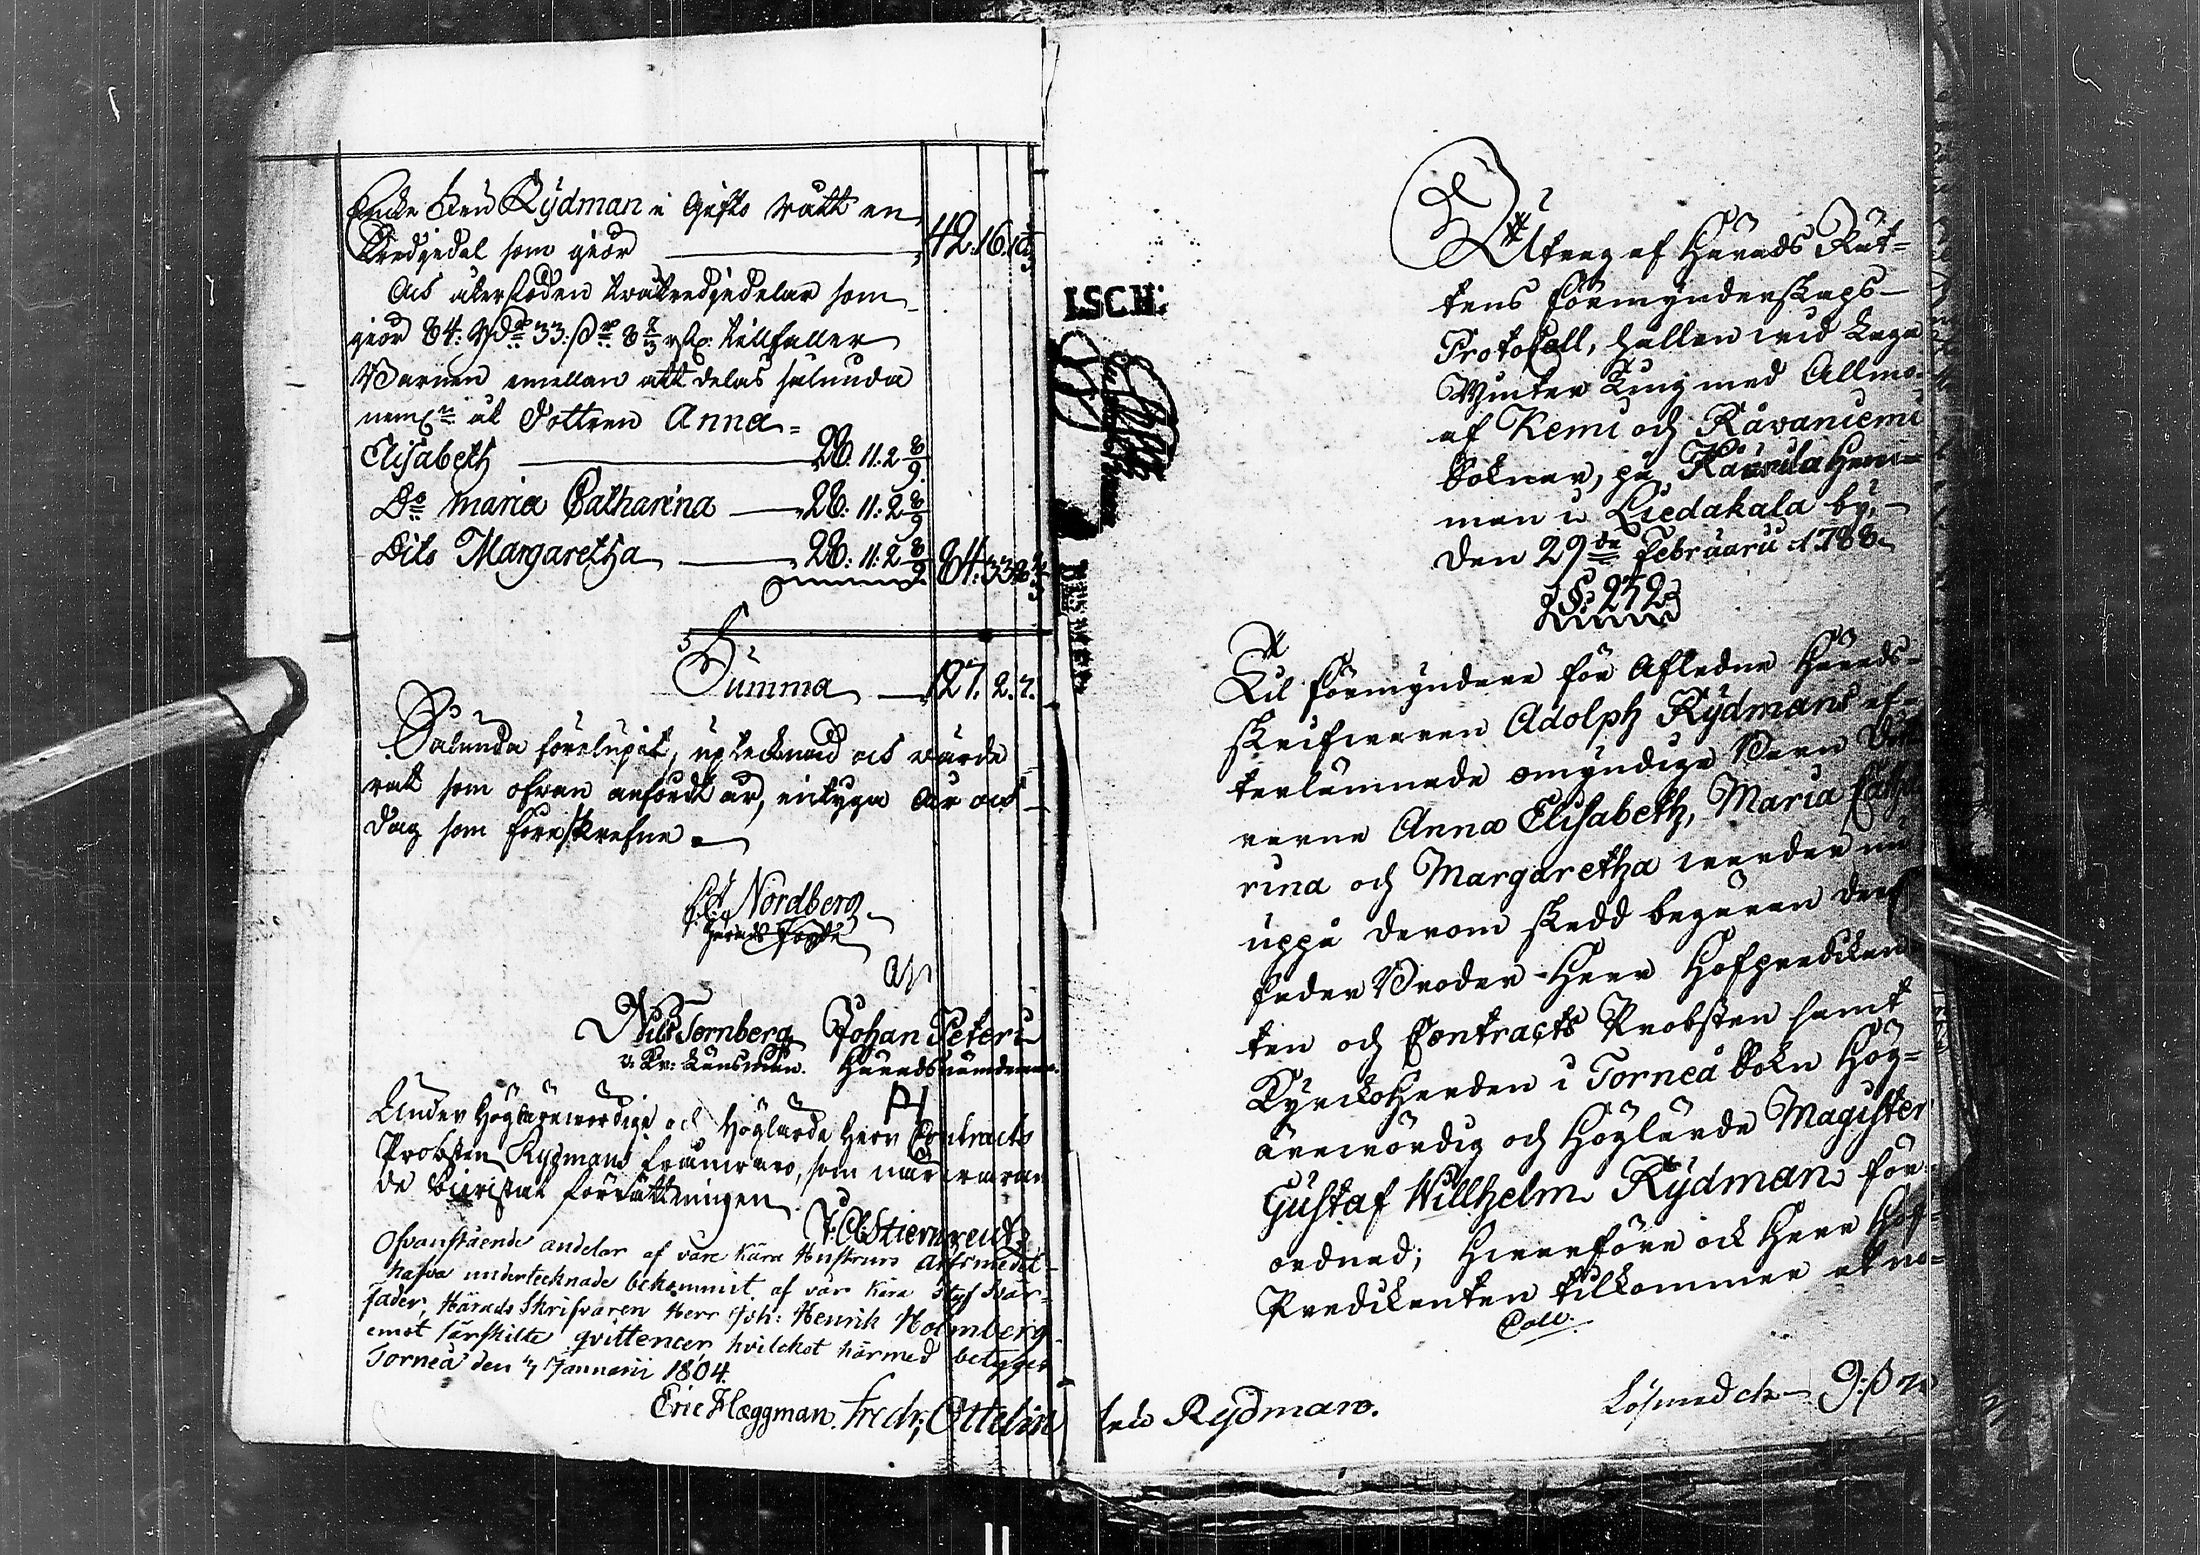 Enke Fru Rydman i Gifto rätt en
Tredjedel som giör 42. 16.
Och återstoden tvåtredjedelar som
giör 84: Rd:r 33: s:r 8 2/3 rst: tillfaller
Barnen emellan att delas sålunda
neml:n åt Dottren Anna
Elisabeth 28. 11: 2 8/9
D:o Maria Catharina 28: 11: 2 8/9
Dito Margaretha 28: 11: 2 8/9 84: 33: 8 2/3
Summa 127. 2. 7.
Sålunda förelupit, upteknad och värde
rat som ofvan anfördt är, intyga År och
dag som föreskrefne
Nordberg
Härads Fogde
Nils Tornberg Johan Peteri
v: Kr: Länsman. Häradsnämdeman.
Under Höglärevördige och Höglärde Herr Contracts
Probsten Rydmans frånvaro, som närvaran
de bivistat förrättningen
Stiernreutz
Ofvanstående andelar af våre Kära Hustrurs Arfsmedel
hafva undertecknade bekommit af vår Kära Styf Svär=
fader, Härads Skrifvaren Herr Joh: Henrik Holmberg
emot särskilte qvittencer, hvilcket härmed betyges
Torneå den 4/7 Januarii 1804.
Eric Hæggman. Fredr; Ottelin
Utrag af Härads Rät=
tens Förmynderskaps-
Protokoll, hållen vid Laga
Vinter Ting med Allmo-
af Kemi och Råvaniemi
Soknar, på Kaurila Hem=
man i Liedakala by,
den 29:de Februarii 1788.
§: 272
Til Förmyndare för Afledne Härads=
skrifvaren Adolph Rydmans ef-
terlämnade omyndige Barn Dött
rarne Anna Elisabeth, Maria Catha
rina och Margaretha warder nu
uppå derom skedd begäran deras
fader Broder Herr Hofpredikan
ten och Contracts Probsten samt
KyrckoHerden i Torneå Sokn Hög=
ärevördig och Höglärde Magister
Gustaf Willhelm Rydman för=
ordnad; Hvarföre ock Herr Hof=
Predikanten tilkommer at no=
Coll.
Lösen och 9: s
Rydman.